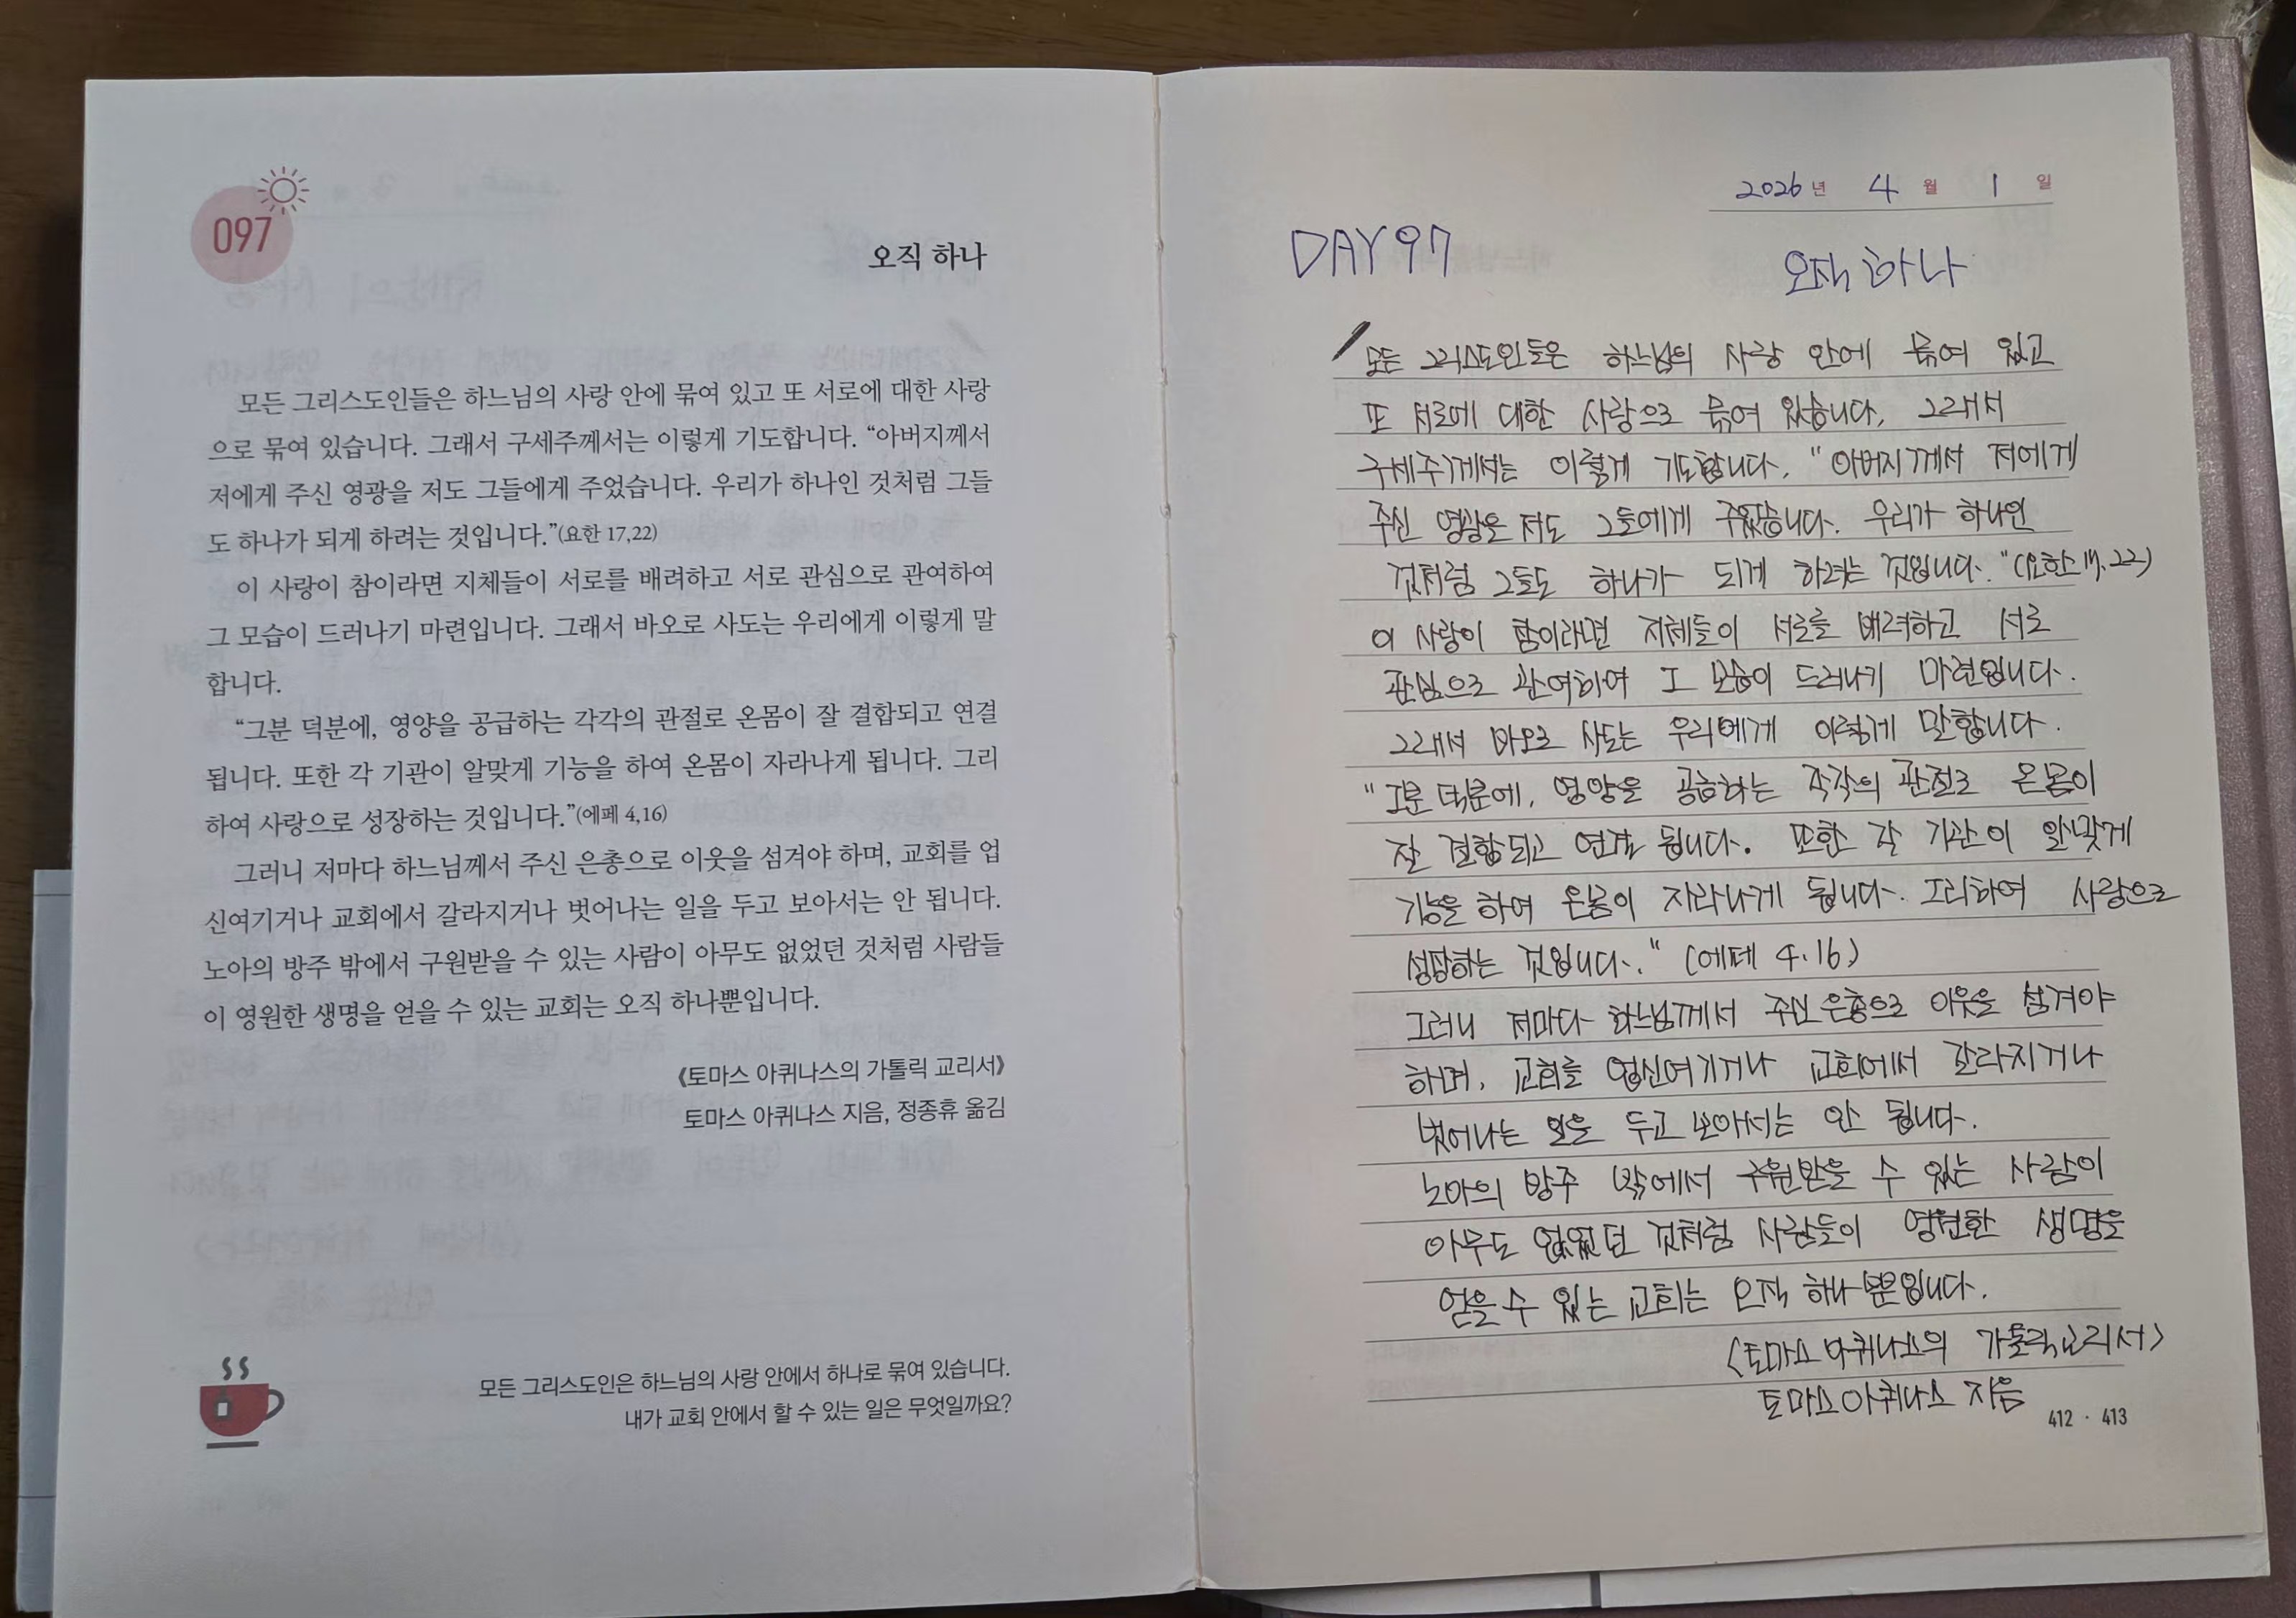 097
오직 하나
모든 그리스도인들은 하느님의 사랑 안에 묶여 있고 또 서로에 대한 사랑
으로 묶여 있습니다. 그래서 구세주께서는 이렇게 기도합니다. “아버지께서
저에게 주신 영광을 저도 그들에게 주었습니다. 우리가 하나인 것처럼 그들
도 하나가 되게 하려는 것입니다.”(요한 17,22)
이 사랑이 참이라면 지체들이 서로를 배려하고 서로 관심으로 관여하여
그 모습이 드러나기 마련입니다. 그래서 바오로 사도는 우리에게 이렇게 말
합니다.
“그분 덕분에, 영양을 공급하는 각각의 관절로 온몸이 잘 결합되고 연결
됩니다. 또한 각 기관이 알맞게 기능을 하여 온몸이 자라나게 됩니다. 그리
하여 사랑으로 성장하는 것입니다.”(에페 4,16)
그러니 저마다 하느님께서 주신 은총으로 이웃을 섬겨야 하며, 교회를 업
신여기거나 교회에서 갈라지거나 벗어나는 일을 두고 보아서는 안 됩니다.
노아의 방주 밖에서 구원받을 수 있는 사람이 아무도 없었던 것처럼 사람들
이 영원한 생명을 얻을 수 있는 교회는 오직 하나뿐입니다.
《토마스 아퀴나스의 가톨릭 교리서》
토마스 아퀴나스 지음, 정종휴 옮김
모든 그리스도인은 하느님의 사랑 안에서 하나로 묶여 있습니다.
내가 교회 안에서 할 수 있는 일은 무엇일까요?
2026년 4월 1일
DAY 97
오직 하나
모든 그리스도인들은 하느님의 사랑 안에 묶여 있고
또 서로에 대한 사랑으로 묶여 있습니다. 그래서
구세주께서는 이렇게 기도합니다. "아버지께서 저에게
주신 영광을 저도 그들에게 주었습니다. 우리가 하나인
것처럼 그들도 하나가 되게 하려는 것입니다." (요한 17.22)
이 사랑이 참이라면 지체들이 서로를 배려하고 서로
관심으로 관여하여 그 모습이 드러나기 마련입니다.
그래서 바오로 사도는 우리에게 이렇게 말합니다.
"그분 덕분에, 영양을 공급하는 각각의 관절로 온몸이
잘 결합되고 연결 됩니다. 또한 각 기관이 알맞게
기능을 하여 온몸이 자라나게 됩니다. 그리하여 사랑으로
성장하는 것입니다." (에페 4.16)
그러니 저마다 하느님께서 주신 은총으로 이웃을 섬겨야
하며, 교회를 업신여기거나 교회에서 갈라지거나
벗어나는 일을 두고 보아서는 안 됩니다.
노아의 방주 밖에서 구원받을 수 있는 사람이
아무도 없었던 것처럼 사람들이 영원한 생명을
얻을 수 있는 교회는 오직 하나뿐입니다.
<토마스 아퀴나스의 가톨릭 교리서>
토마스 아퀴나스 지음
412 · 413